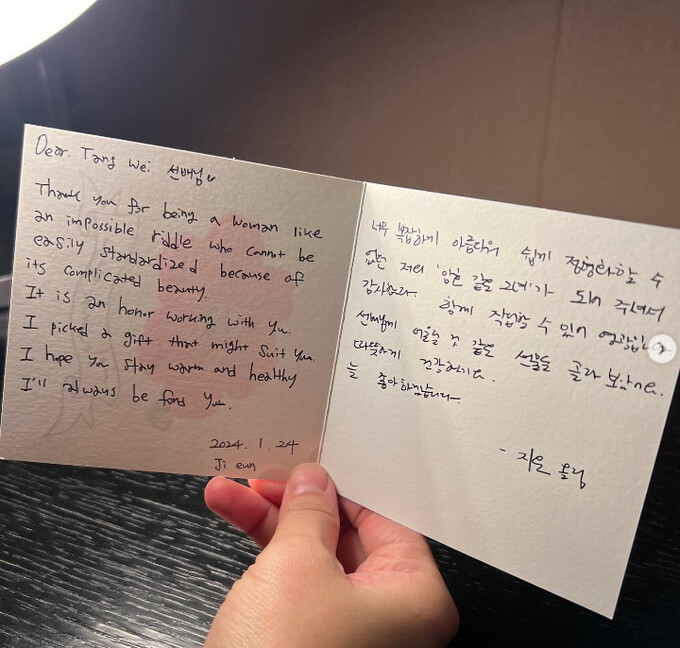 Dear. Tang Wei 선배님
Thank you for being a woman like
an impossible riddle who cannot be
easily standardized because of
its complicated beauty.
It is an honor working with you.
I picked a gift that might suit you.
I hope you stay warm and healthy
I'll always be fond you.
2024. 1. 24
Ji eun
너무 복잡하게 아름다워 쉽게 정형화할 수
없는 저의 '암호 같은 그녀'가 되어 주셔서
감사합니다. 함께 작업할 수 있어 영광입니다
선배님께 어울릴 것 같은 선물을 골라 보았어요.
따뜻하게 건강하세요.
늘 좋아하겠습니다.
- 지은 올림